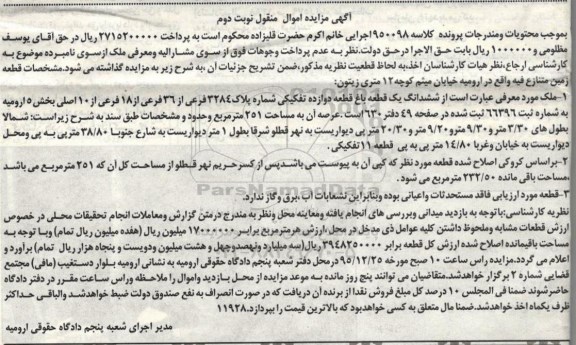 آگهی مزایده اموال منقول نوبت دوم
بموجب محتویات ومندرجات پرونده کلاسه ۹۵۰۰۹۸ اجرایی خانم اکرم حضرت قلیزاده محکوم است به پرداخت ۲۷۱۵۲۰۰۰۰۰ ریال در حق اقای یوسف
مظلومی و ۱۰۰۰۰۰۰ ریال بابت حق الاجرا درحق دولت.نظر به عدم پرداخت وجوهات فوق از سوی مشارالیه ومعرفی ملک از سوی نامبرده موضوع به
کارشناسی ارجاع،نظر هیات کارشناسان اخذ،به لحاظ قطعیت نظریه مذکور،ضمن تشریح جزئیات آن ،به شرح زیر به مزایده گذاشته می شود.مشخصات قطعه
زمین متنازع فیه واقع در ارومیه خیابان میثم کوچه ۱۲ متری زیتون:
۱-ملک مورد معرفی عبارت است از ششدانگ یک قطعه باغ قطعه دوازده تفکیکی شماره پلاک ۳۲۸۴ فرعی از ۳۶ فرعی از ۱۸ فرعی از ۱۰ اصلی بخش ۵ ارومیه
به شماره ثبت ۶۶۳۹۶ ثبت شده در صفحه ۴۹ دفتر ۶۳۰ است.عرصه آن به مساحت ۲۵۱ مترمربع وحدود و مشخصات طبق سند به شرح زیراست: شمالا
بطول های ۳/۳۰ متر و ۹/۳۰ مترو ۹/۲۰ متر و ۲۰/۳۰ متر پی دیواریست به نهر قطلو شرقا بطول ۱ متر دیواریست به شارع جنوبا ۳۸/۸۰ مترپی به پی ومحل
دیواریست به خیابان وغربا ۱۴/۸۰ متر پی به پی قطعه ۱۱ تفکیکی .
۲-براساس کروکی اصلاح شده قطعه مورد نظر که کپی آن به پیوست می باشد.پس از کسر حریم نهر قطلو از مساحت کل آن که ۲۵۱ مترمربع می باشد
،مساحت باقی مانده ۲۳۲/۵۰ مترمربع می شود.
۳-قطعه مورد ارزیابی فاقد مستحدثات واعیانی بوده وبنابراین تشعابات آب ،برق وگاز ندارد.
نظریه کارشناسی:با توجه به بازدید میدانی وبررسی های انجام یافته ومعاینه محل ونظر به مندرج درمتن گزارش ومعاملات انجام تحقیقات محلی در خصوص
ارزش قطعات مشابه وملحوظ داشتن کلیه عوامل ذی مدخل در محل ،ارزش هر مترمربع برابر ۱۷۰۰۰۰۰۰ میلیون ریال (هفده میلیون ریال تمام) وبا توجه به
مساحت باقیمانده اصلاح شده ارزش کل قطعه برابر ۳۹۴۸۲۵۰۰۰۰ ریال(سه میلیارد ونهصدوچهل و هشت میلیون ودویست و پنجاه هزار ریال تمام) برآورد و
اعلام می گردد.مزایده راس ساعت ۱۰ صبح مورخه ۹۵/۱۲/۲۵ درمحل دفتر شعبه پنجم دادگاه حقوقی ارومیه به نشانی ارومیه بلوار دستغیب (مافی) مجتمع
قضایی شماره ۲ برگزار خواهدشد.متقاضیان می توانند پنج روز مانده به موعد مزایده از محل بازدید واموال را ملاحظه وراس ساعت مقرر در دفتر دادگاه
حاضرشوند ضمنا فی المجلس ۱۰ درصد کل مبلغ فروش نقدا از برنده آن دریافت که در صورت انصراف به نفع صندوق دولت ضبط خواهدشد والباقی حداکثر
ظرف یکماه اخذ خواهدشد.ضمنا مال متعلق به کسی خواهدبود که بالاترین قیمت را بپردازد. ۱۱۹۲۸
مدیر اجرای شعبه پنجم دادگاه حقوقی ارومیه
ParsNamadData